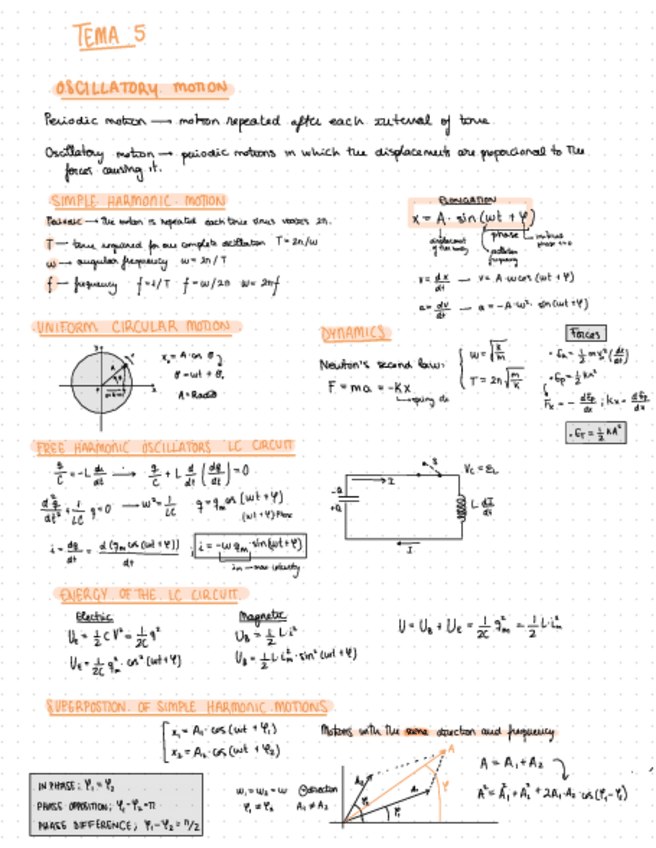 TEMA 5
OSCILLATORY MOTION
Periodic motion → motion repeated after each interval of time.
Oscillatory motion → periodic motions in which the displacements are proporcional to the
forces causing it.
SIMPLE HARMONIC MOTION
Periodic → the motion is repeated each time sinus varies 2π.
T → time required for one complete oscillation T = 2π/ω
ω → angular frequency ω = 2π/T
f → frequency f = 1/T f = ω/2π ω = 2πf
ELONGATION
x = A · sin (ωt + φ)
phase
v = dx/dt → v = A·ω cos (ωt + φ)
a = dv/dt → a = -A·ω²· sin(ωt + φ)
UNIFORM CIRCULAR MOTION
A = Radio
DYNAMICS
Newton's second law:
F = ma = -Kx
ω = √k/m
T = 2π√m/k
Forces
Ep = 1/2 kx²
ET = 1/2 kA²
FREE HARMONIC OSCILLATORS LC CIRCUIT
q/C = -L di/dt → q/C + L d/dt (dq/dt) = 0
d²q/dt² + 1/LC q = 0 → ω² = 1/LC q = qm cos (ωt + φ)
(ωt + φ) Phase
i = dq/dt = d(qm cos(ωt + φ))/dt ; i = -ω qm sin(ωt + φ)
S
I
Vc = EL
-Q
+Q
L di/dt
I
ENERGY OF THE LC CIRCUIT
Electric
UE = 1/2 C V² = 1/2C q²
UE = 1/2C qm² · cos² (ωt + φ)
Magnetic
UB = 1/2 L · i²
UB = 1/2 L · im² · sin² (ωt + φ)
U = UB + UE = 1/2C qm² = 1/2 L · im²
SUPERPOSTION OF SIMPLE HARMONIC MOTIONS
x₁ = A₁ · cos (ωt + φ₁)
x₂ = A₂ · cos (ωt + φ₂)
Motions with the same direction and frequency
IN PHASE; φ₁ = φ₂
PHASE OPPOSITION; φ₁ - φ₂ = π
PHASE DIFFERENCE; φ₁ - φ₂ = π/2
ω₁ = ω₂ = ω direction
φ₁ ≠ φ₂ A₁ ≠ A₂
A
A₂
A₁
φ
φ₂
φ₁
A = A₁ + A₂
A² = A₁² + A₂² + 2A₁·A₂ · cos (φ₂ - φ₁)